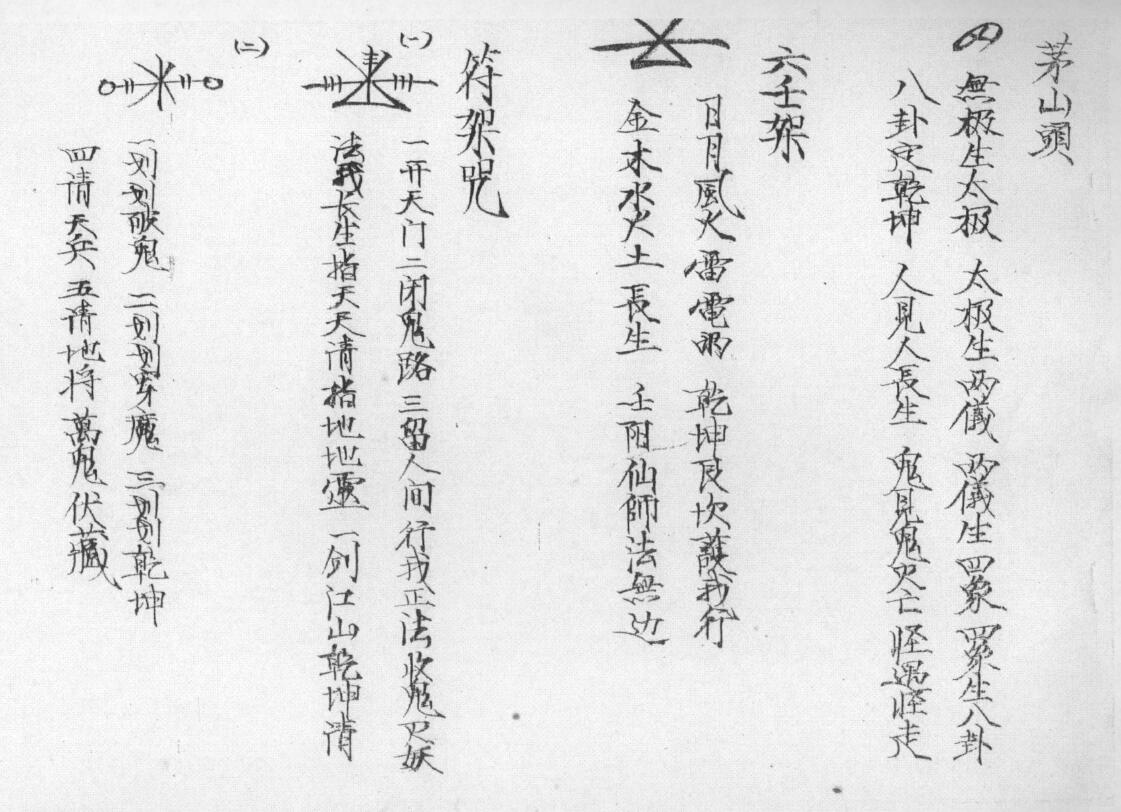 茅山頭
無极生太极 太极生两儀 两儀生四象 四象生八卦
八卦定乾坤 人見人長生 鬼見鬼灭亡 怪遇怪走
六壬架
日月風火 雷電雨 乾坤艮坎護我行
金木水火土長生 壬阳仙師法無边
符架咒
(一)
一开天门二闭鬼路三留人间行我正法收鬼灭妖
法我长生指天天清指地地靈一剑江山乾坤清
(二)
一划划破鬼 二划划穿魔 三划划乾坤
四請天兵 五請地将 萬鬼伏藏